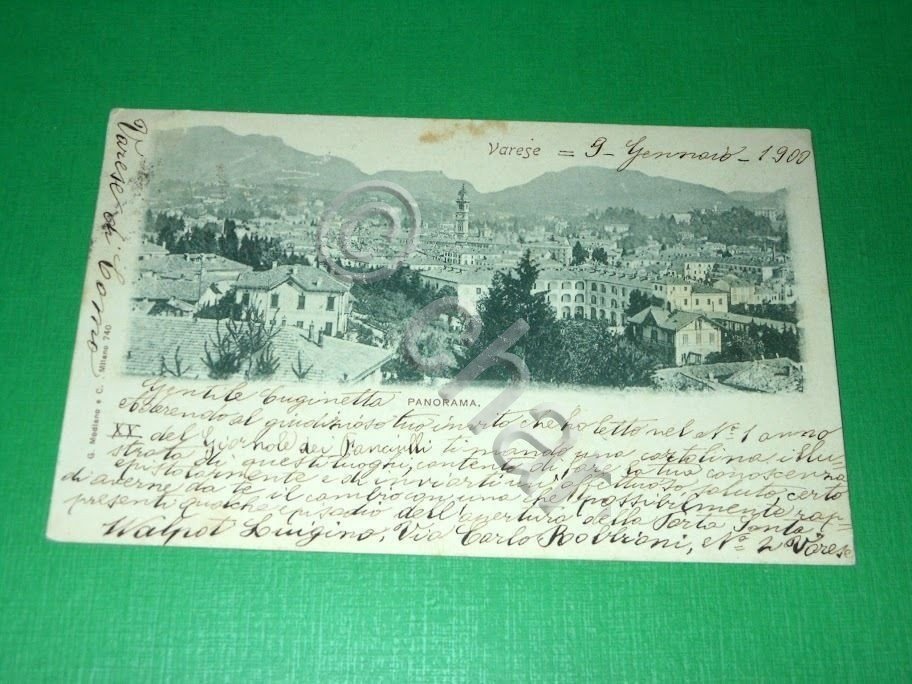 Varese = 9 - Gennaio - 1900
Varese di Como
G. Modiano e C. Milano 740
PANORAMA.
Gentile Cuginetta
Aderendo al giudizioso tuo invito che ho letto nel N.º 1 anno
XX del Giornale dei Fanciulli ti mando una cartolina illu-
strata di questi luoghi, contento di fare la tua conoscenza
epistolarmente e di inviarti un affettuoso saluto, certo
di averne da te il cambio con una che possibilmente rap-
presenti qualche episodio dell'apertura della Porta Santa.
Walpot Luigino, Via Carlo N.º 2 Varese
© ehday